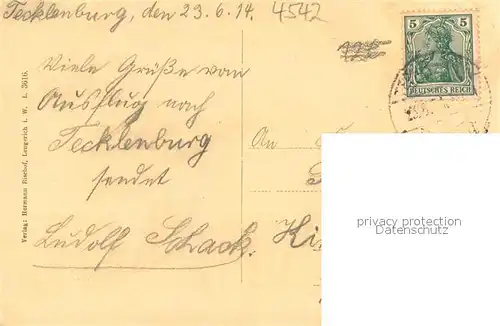 Tecklenburg, den 23.6.14.
4542
5 5
DEUTSCHES REICH
Viele Grüße vom
Ausflug nach
Tecklenburg
sendet
Ludolf Schack.
An
Verlag: Hermann Rische, Lengerich i. W. L. 3616.
privacy protection
Datenschutz